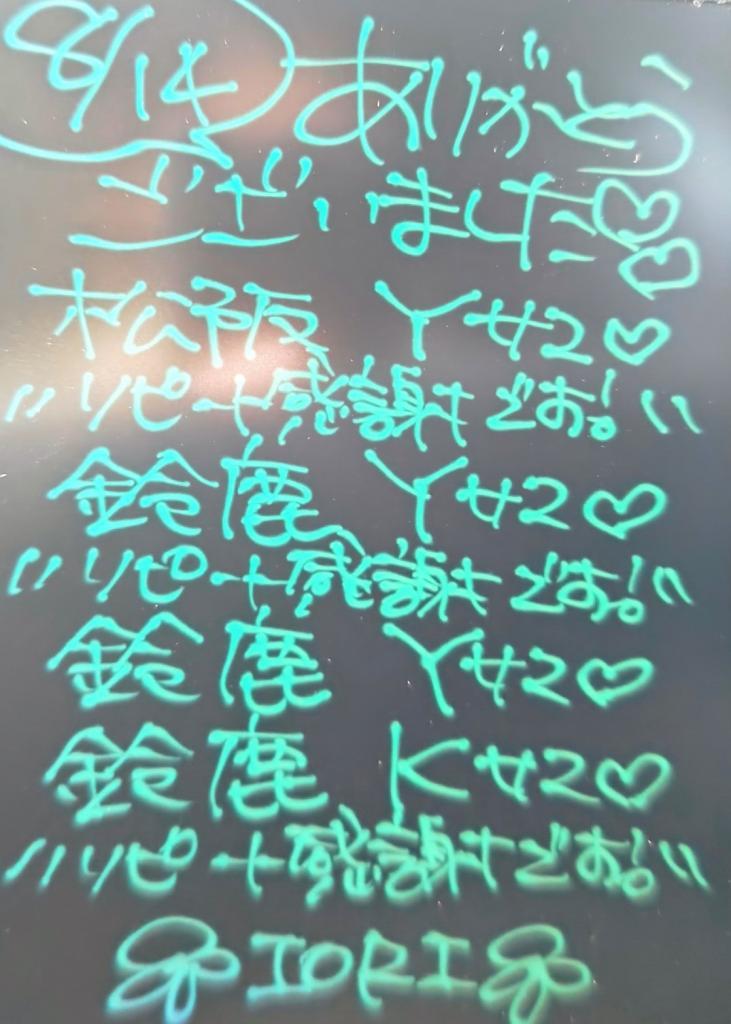 8/14 ありがとう
ございました♡♡
松阪 Yサン♡
〃リピート感謝です!〃
鈴鹿 Yサン♡
〃リピート感謝です!〃
鈴鹿 Yサン♡
鈴鹿 Kサン♡
〃リピート感謝です!〃
IORI